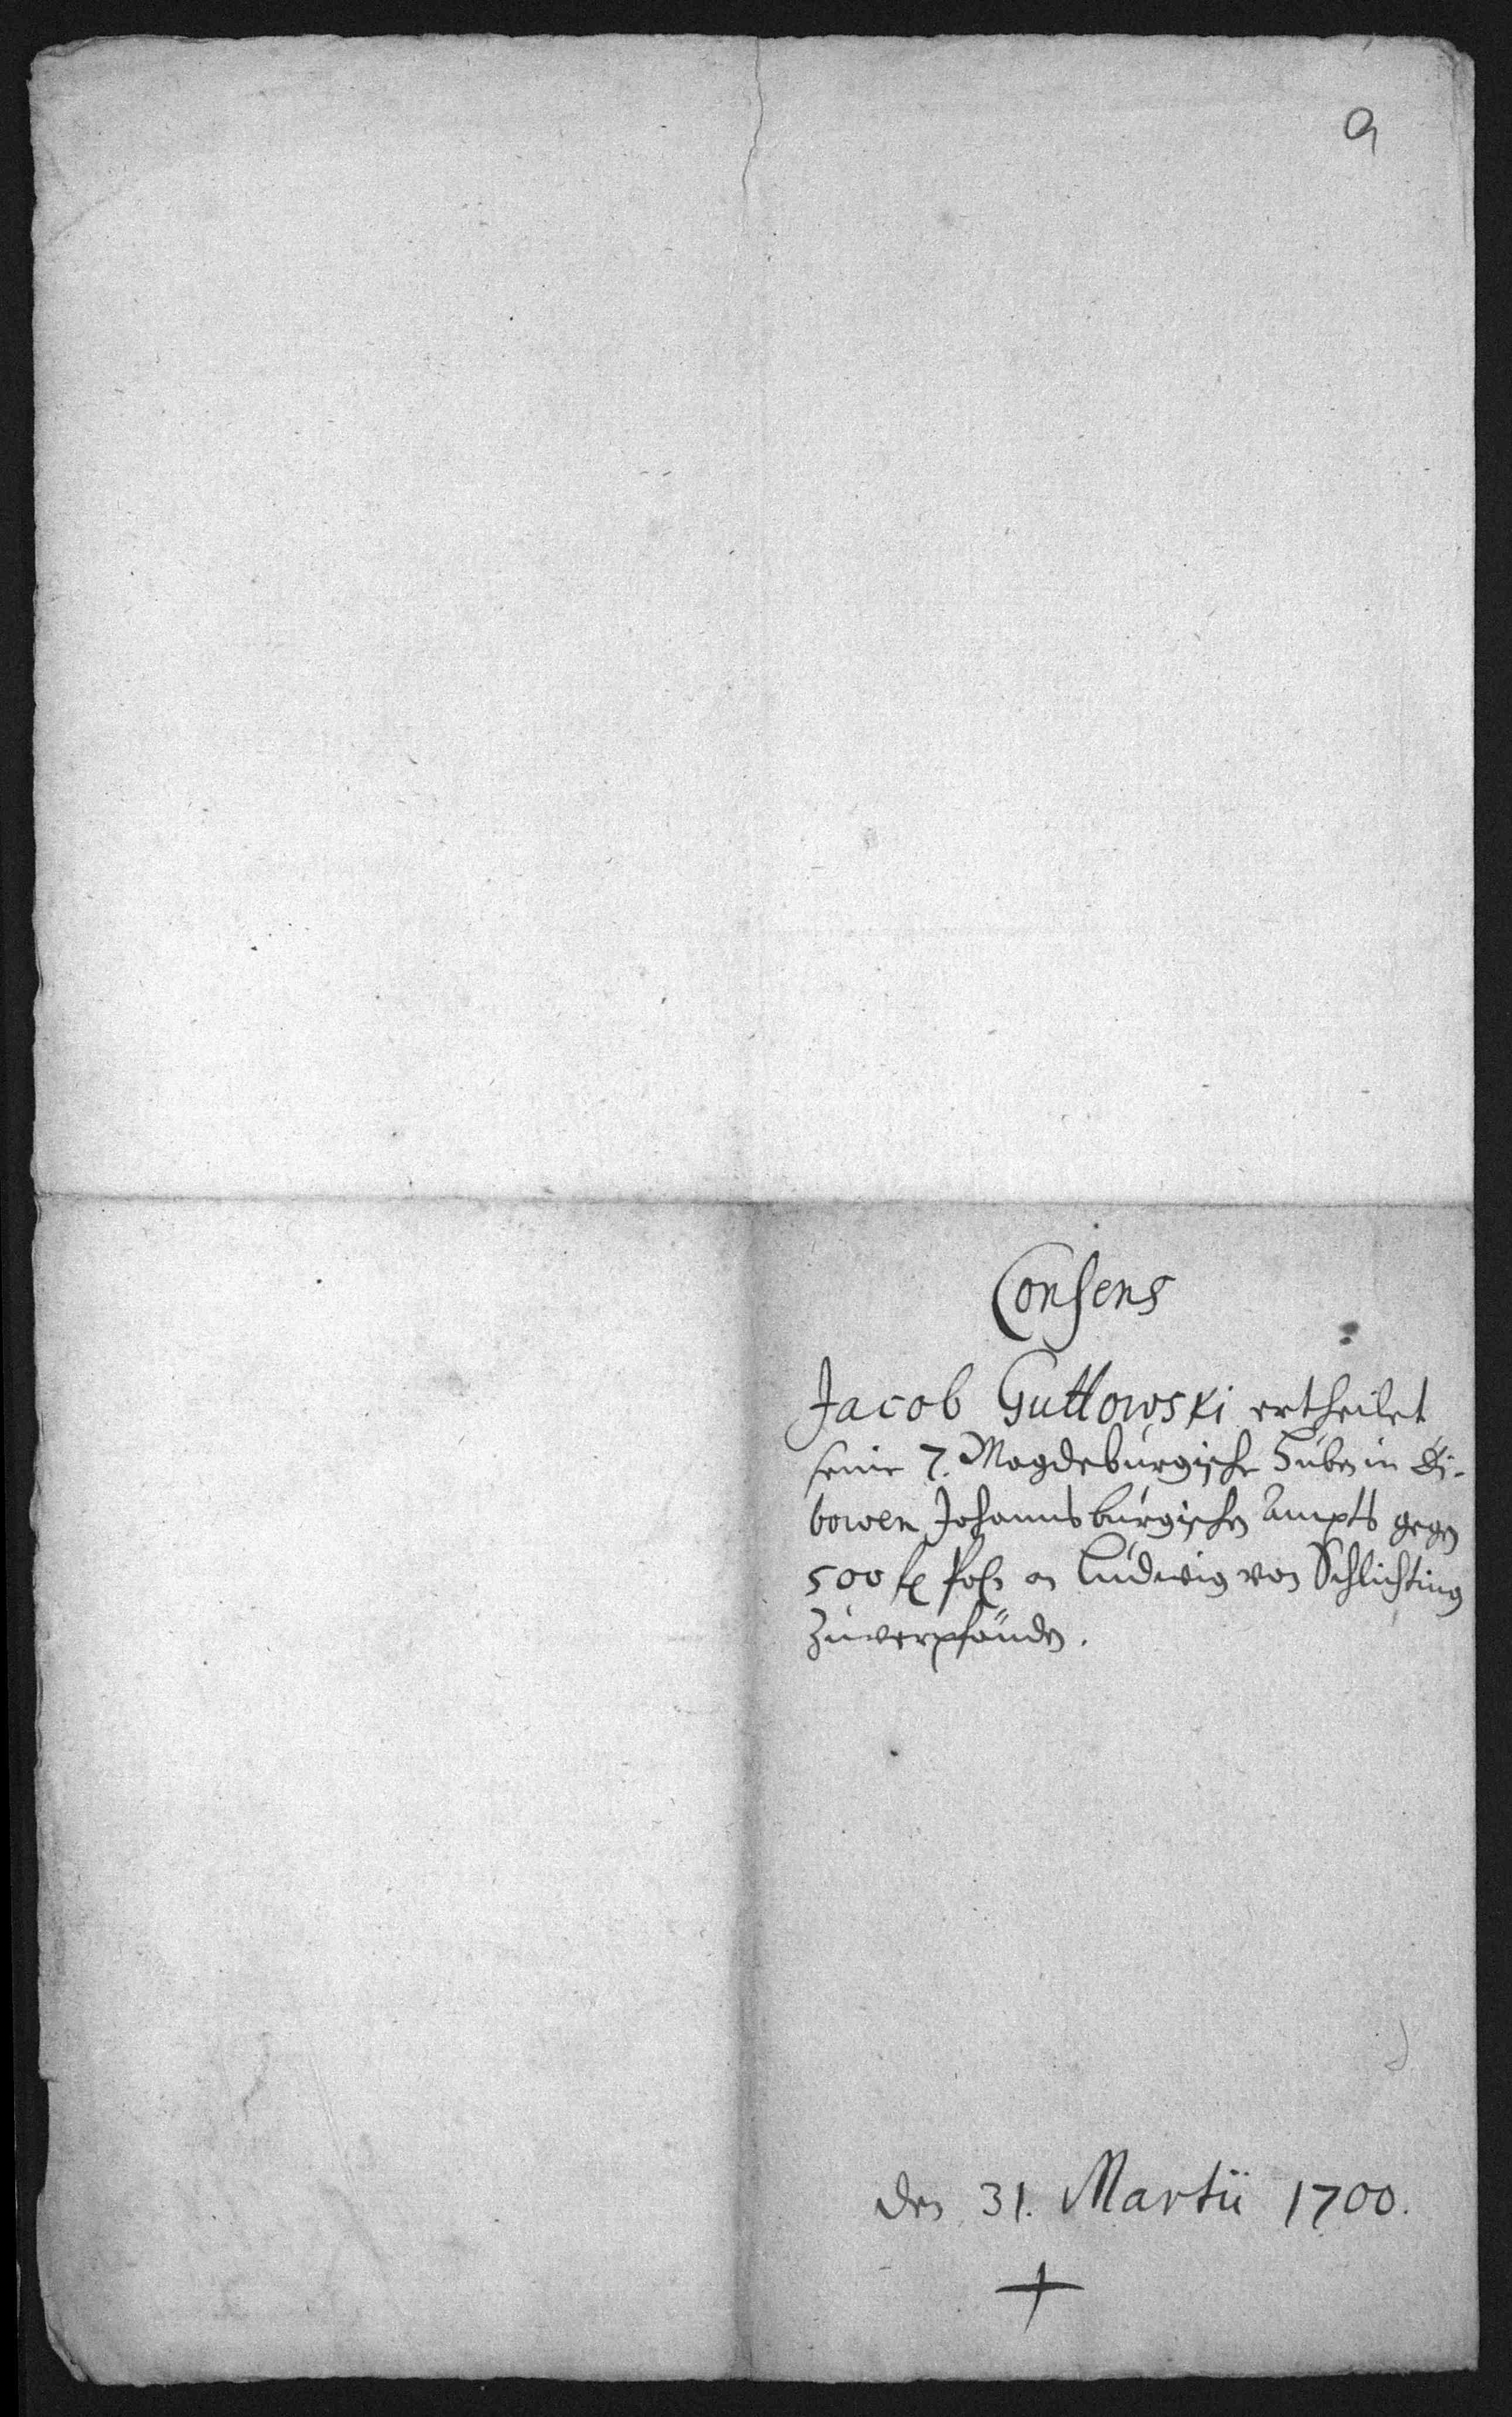 9
Consens
Jacob Guttowski ertheilet
seine 7. Magdeburgische Huben in
bowen Johannsburgischen Ampts gegen
500 fl Poln an Ludwig von Schlichting
zuverpfänden.
den 31. Martii 1700.